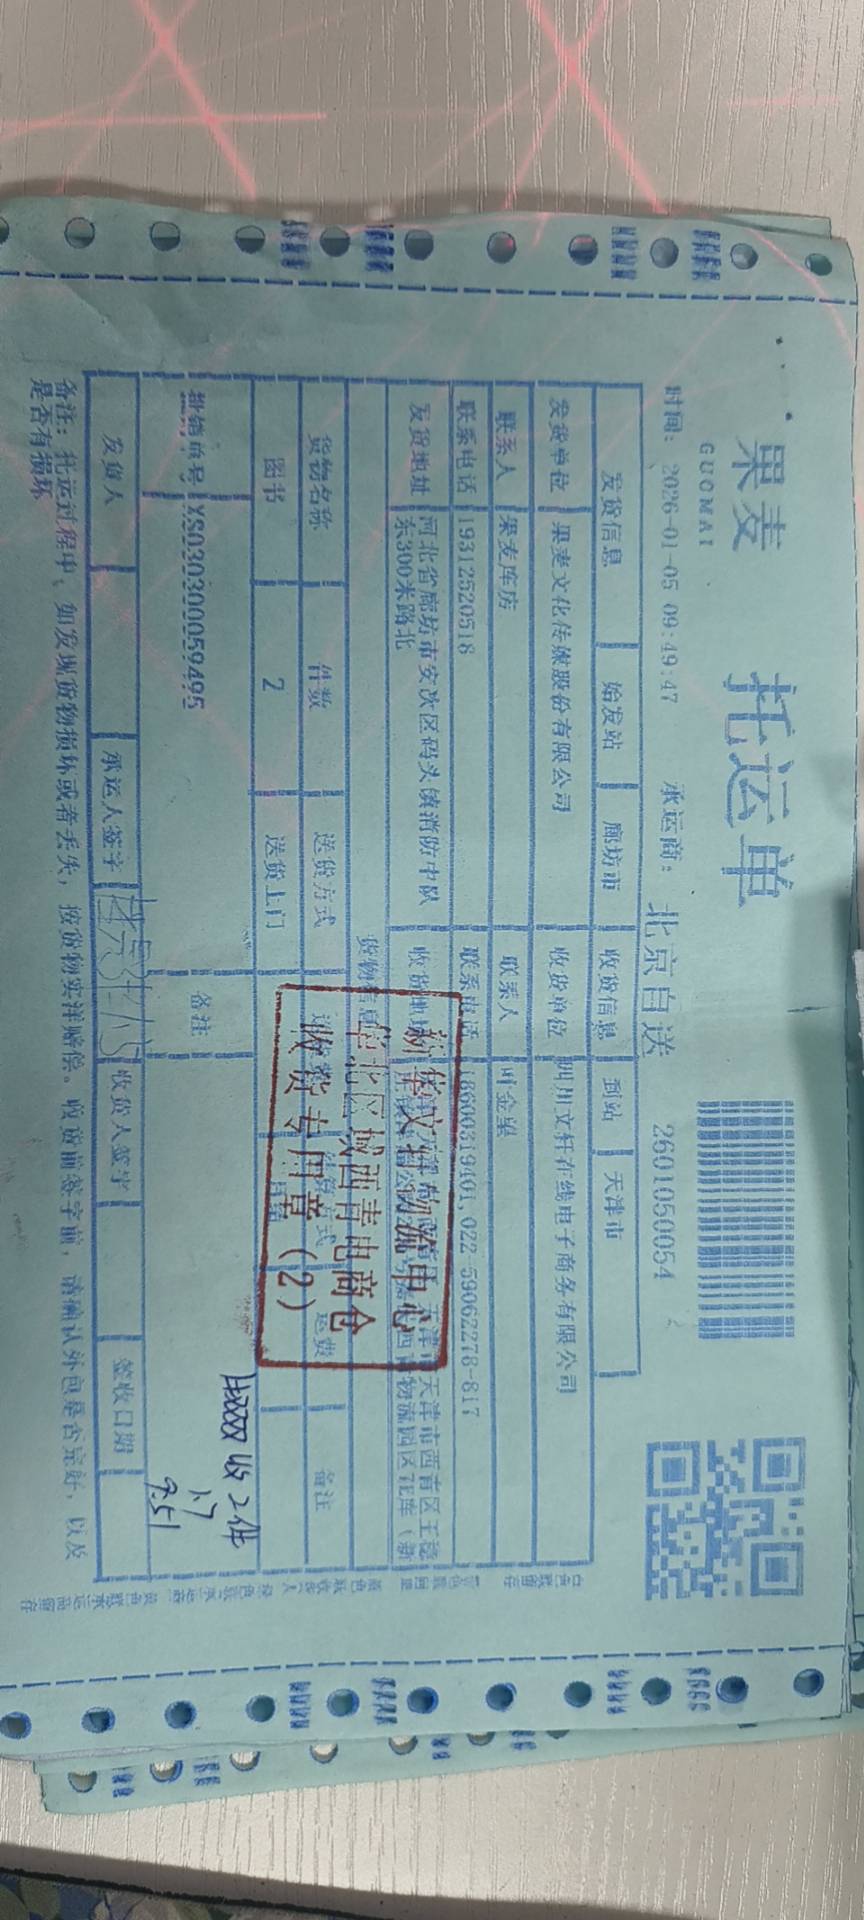 果麦
GUOMAI
托运单
时间: 2026-01-05 09:49:47 承运商: 北京自送 2601050054
发货信息 始发站 廊坊市 收货信息 到站 天津市
发货单位 果麦文化传媒股份有限公司 收货单位 四川文轩在线电子商务有限公司
联系人 果麦库房 联系人 叶金梁
联系电话 19312520518 联系电话 18600319401,022-59062278-817
发货地址 河北省廊坊市安次区码头镇消防中队
东300米路北
收货地址 天津市西青区王
货物信息
货物名称 件数 送货方式 运费 备注
图书 2 送货上门
新华文轩物流中心
华北区域西青电商仓
收货专用章(2)
收2件
1.7
9.51
XS0303000059495
备注
发货人 承运人签字 收货人签字 签收日期
备注: 托运过程中, 如发现货物损坏或者丢失, 按货物实洋赔偿。收货前签字前, 请确认外包是否完好, 以及
是否有损坏